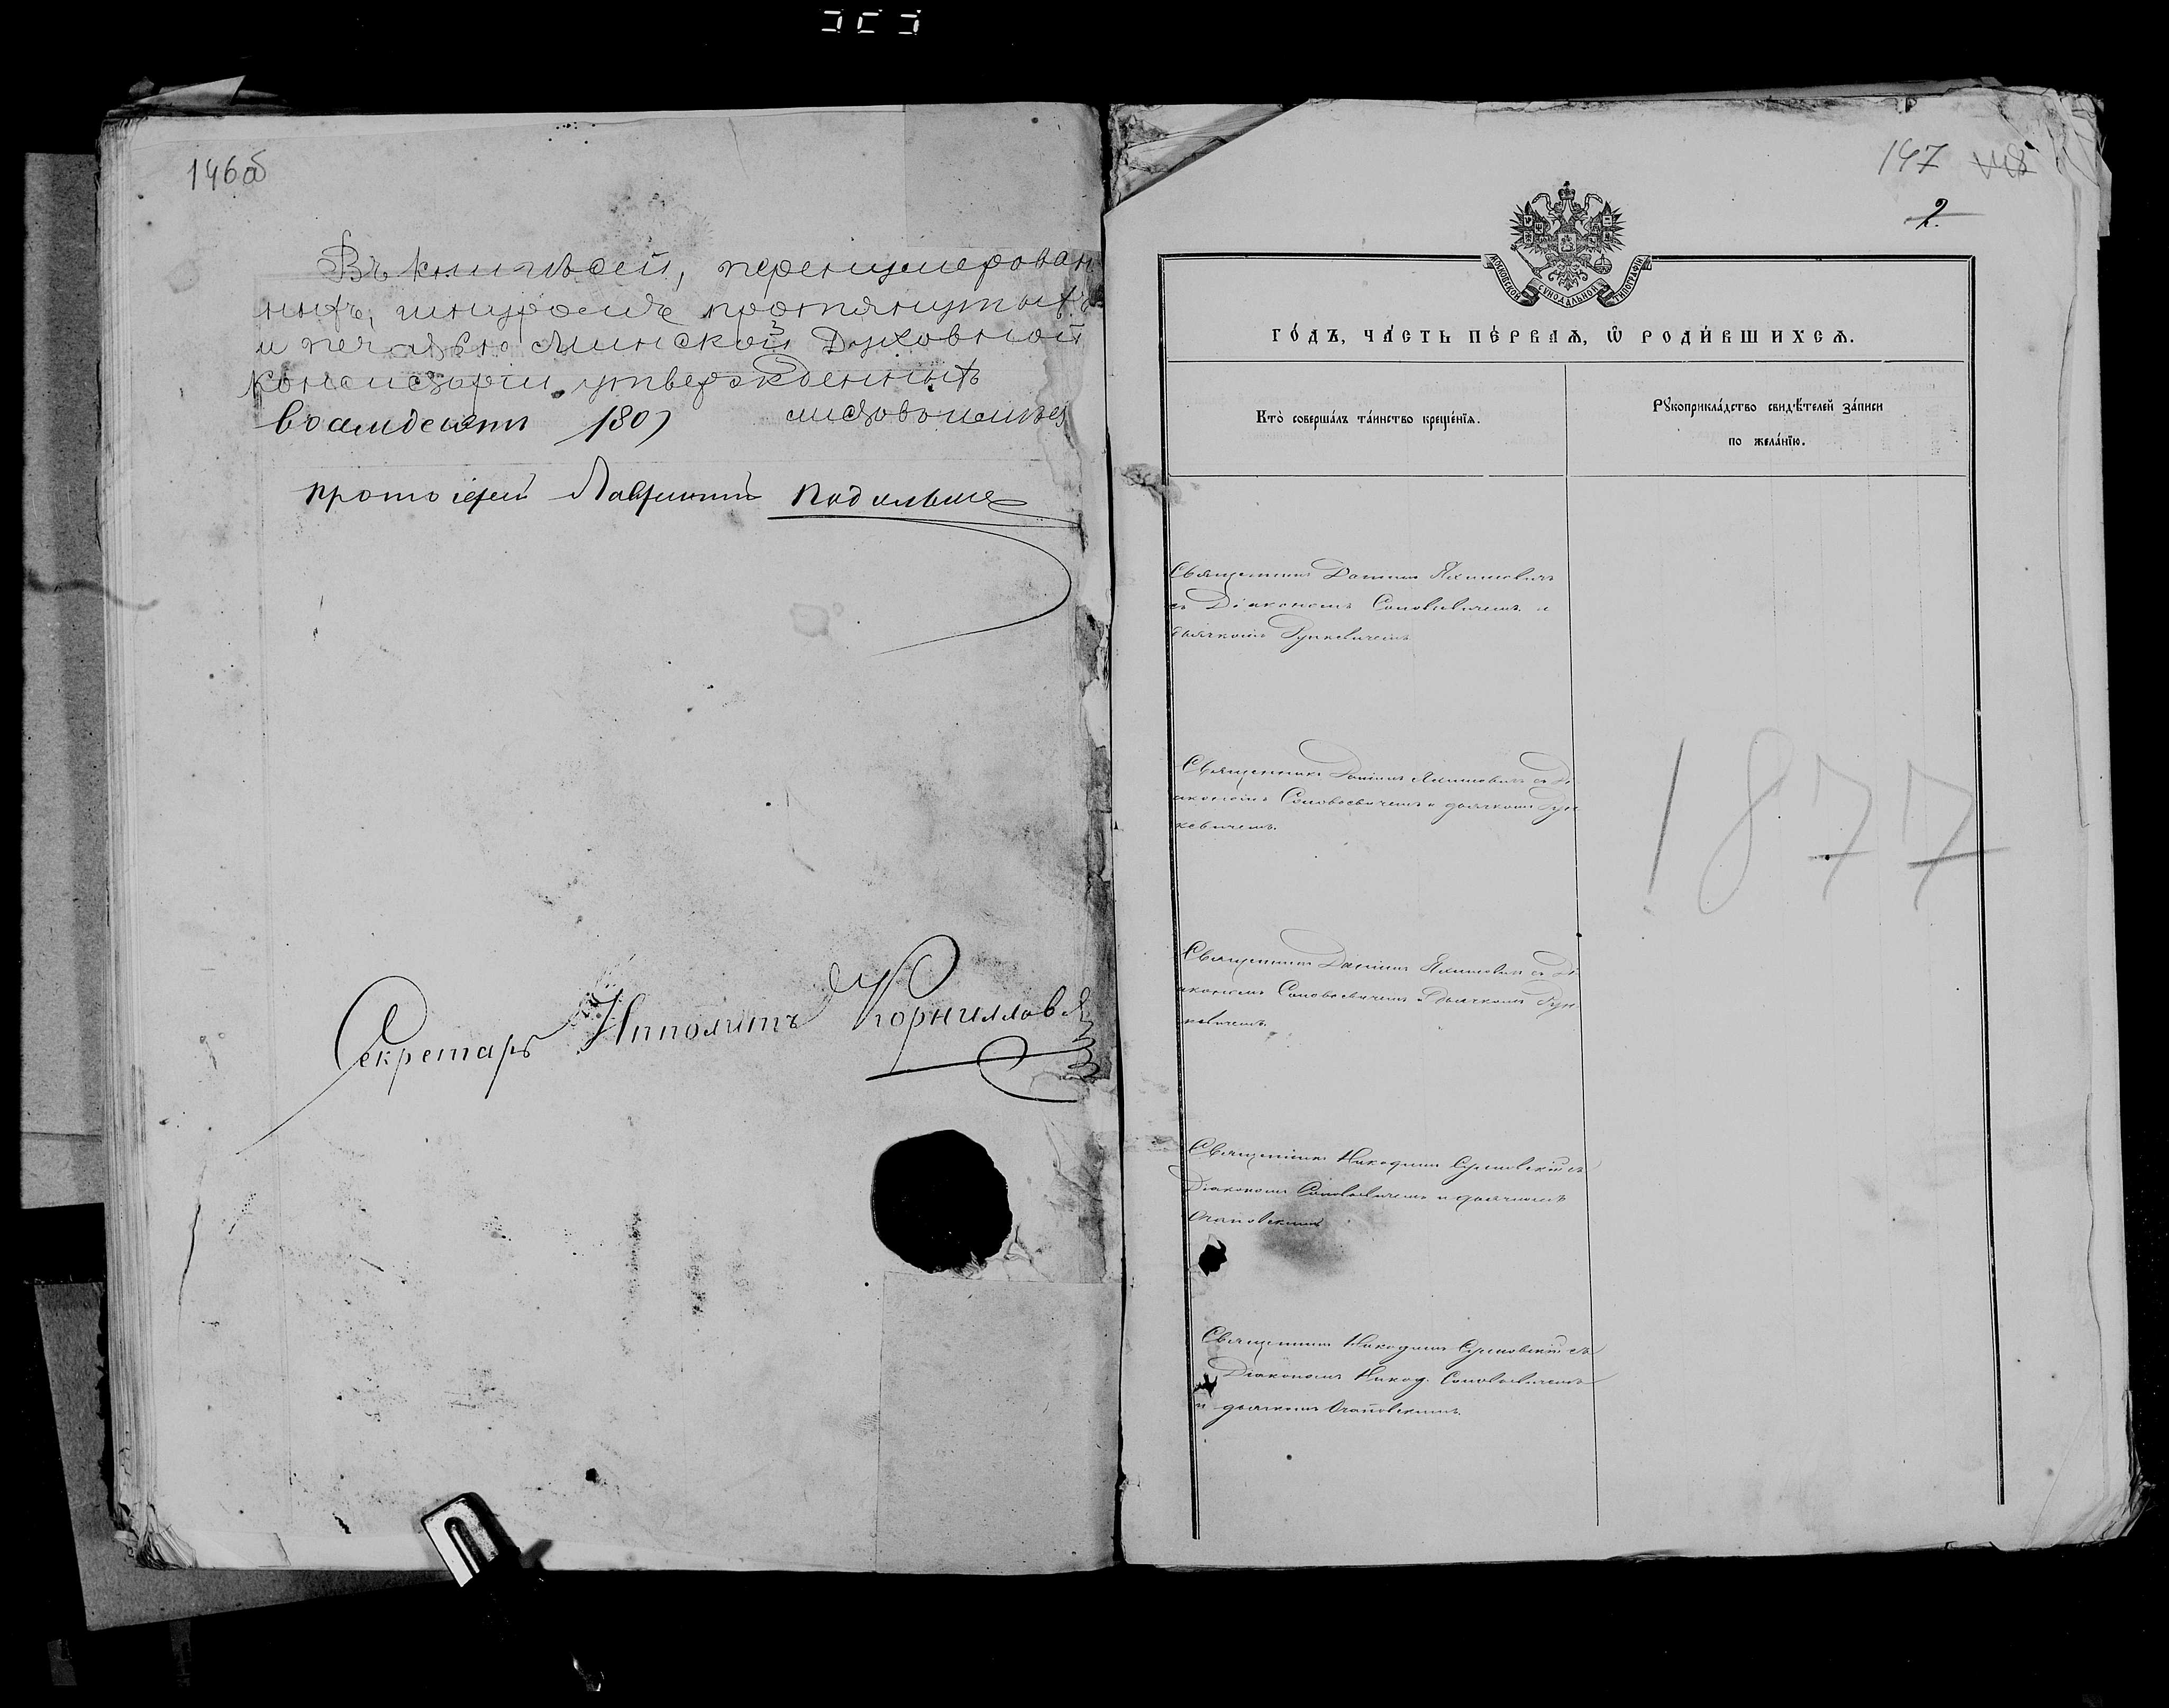 146об
Въ книгѣ сей, перенумерован
ныхъ, шнуромъ протянутыхъ
и печатью Минской Духовной
Консисторіи утвержденныхъ
восмдесятъ /80/ листовъ
протоіерей
Секретарь Ипполитъ Корниллов
147
2.
МОСКОВСКОЙ СѴНОДАЛЬНОЙ ТИПОГРАФІИ
ГО́ДЪ, ЧА́СТЬ ПЕ́РВАѦ, Ѽ РОДИ́ВШИХСѦ.
Кто̀ соверша́лъ та́инство креще́нїѧ.
Рꙋкоприкла́дство свидѣ́телей за́писи
по жела́нїю.
Священникъ Даніилъ Яхимовичъ
съ Діакономъ Соловьевичемъ и
дьячкомъ Рункевичемъ
Священникъ Даніилъ Яхимовичъ съ Ді
акономъ Соловьевичемъ и дьячкомъ Рун
кевичемъ.
Священникъ Даніилъ Яхимовичъ съ Ді
акономъ Соловьевичемъ и дьячкомъ Рун
кевичемъ.
Священникъ Никодимъ съ
Діакономъ Соловьевичемъ и дьячкомъ
Священникъ Никодимъ съ
Діакономъ Никод. Соловьевичемъ
и дьячкомъ
1877